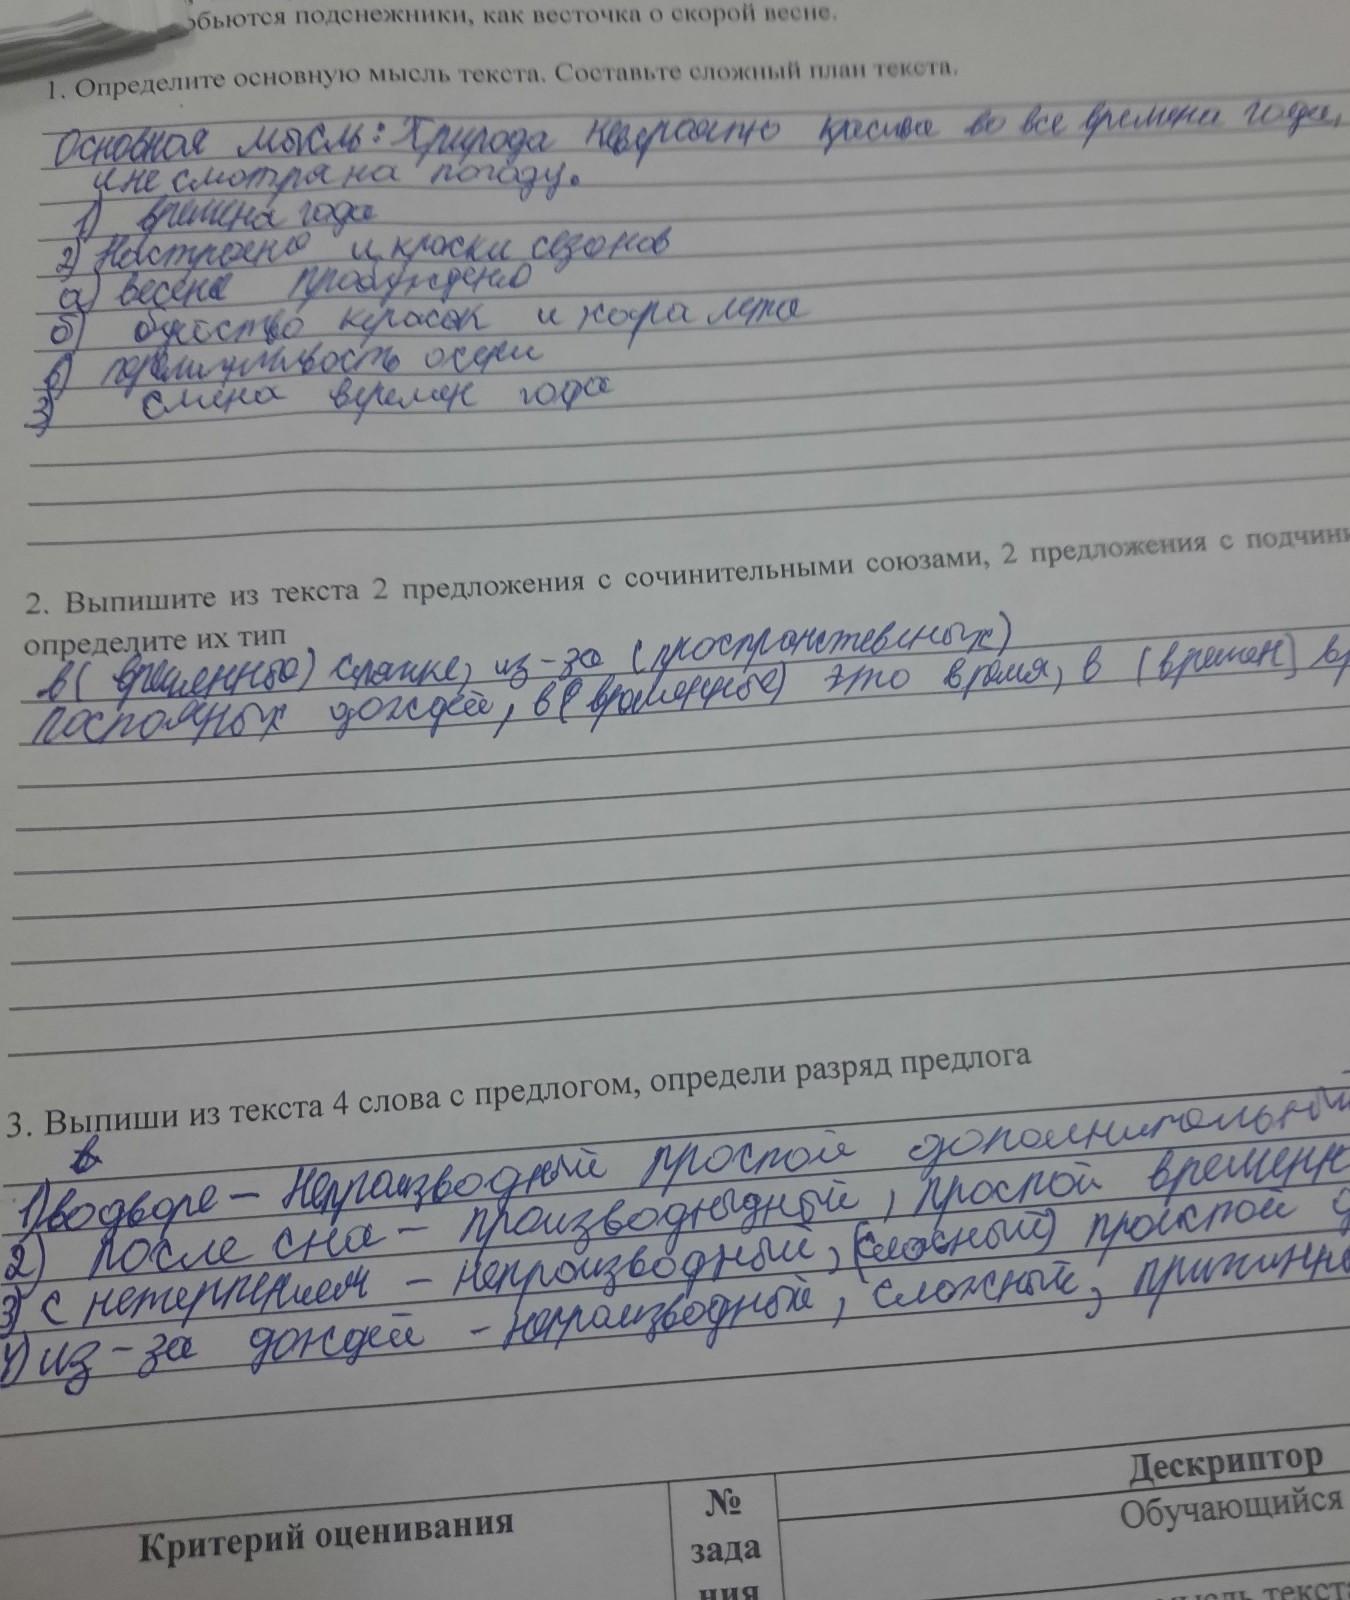 обьются подснежники, как весточка о скорой весне.
1. Определите основную мысль текста. Составьте сложный план текста.
Основная мысль: Природа невероятно красива во все времена года,
и не смотря на погоду.
1) времена года
2) Настроено и краски сезонов
а) весена пробуждено
б) буйство красок и жара лета
в) переминчивость осени
3) смена времен года
2. Выпишите из текста 2 предложения с сочинительными союзами, 2 предложения с подчини
определите их тип
в (временные) спячке, из-за (пространственных)
постояных дождей, в (временные) это время, в (времен) вр
3. Выпиши из текста 4 слова с предлогом, определи разряд предлога
в
1) водворе – Непроизводный простой дополнительный
2) после сна – производныдный, простой временн
3) с нетерпением – непроизводный, (сложный) простой д
4) из-за дождей – непроизводный, сложный, причинны
Критерий оценивания
№
зада
ния
Дескриптор
Обучающийся
мысль текста